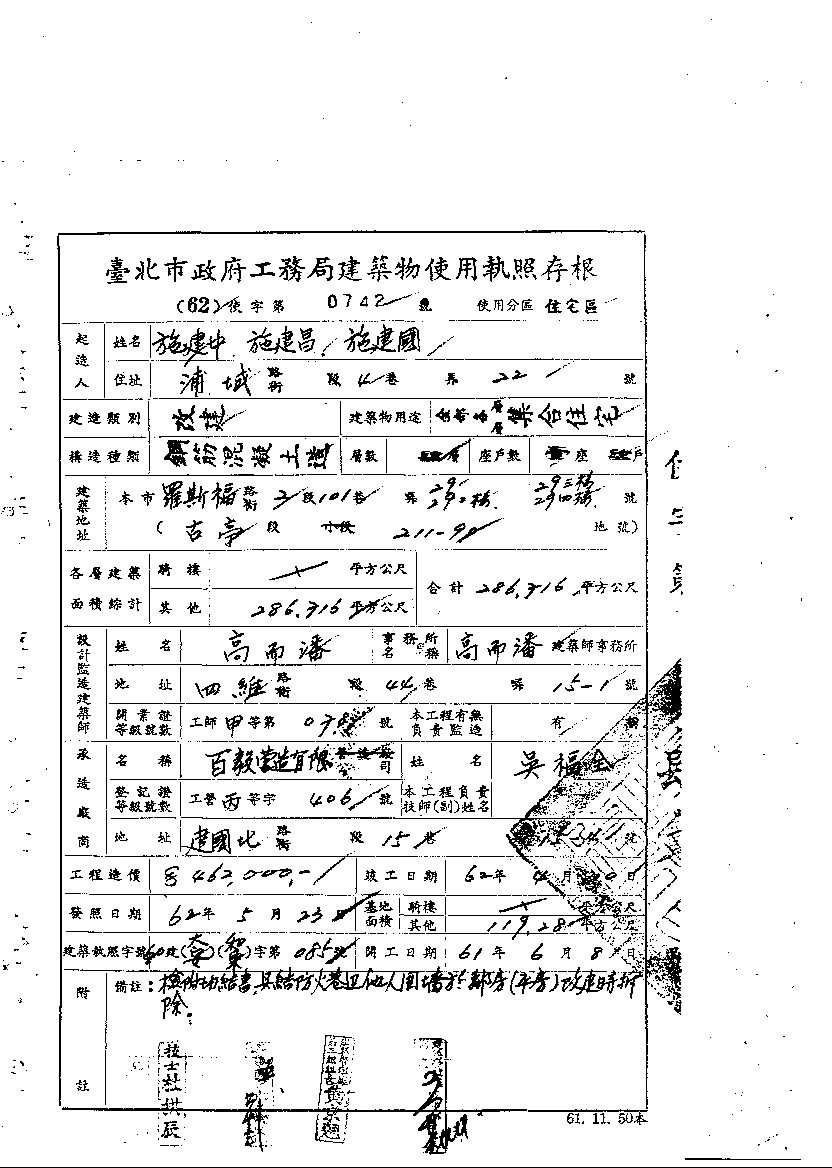 臺北市政府工務局建築物使用執照存根
(62)使字第 0742 號 使用分區 住宅區
起造人 姓名 施建中 施建昌 施建國
住址 浦城 路街 段 4 巷 弄 22 號
建造類別 改建 建築物用途 全部各層 集合住宅
構造種類 鋼筋混凝土造 層數 層 座戶數 座 戶
建築地址 本市 羅斯福 路街 3 段 101 巷 弄 29 29二樓 29三樓 29四樓 號
(古亭 段 小段 211-9 地號)
各層建築面積綜計 騎樓 平方公尺 合計 286.316 平方公尺
其他 286.316 平方公尺
設計監造建築師 姓名 高而潘 事務所名稱 高而潘 建築師事務所
地址 四維 路街 段 44 巷 弄 15-1 號
開業證等級號數 工師 甲 等第 號 本工程有無負責監造 有
承造廠商 名稱 百毅營造有限 公司 姓名 吳福全
登記證等級號數 工營 丙 等字 406 號 本工程負責技師(副)姓名
地址 建國北 路街 段 15 巷 號
工程造價 462,000.- 竣工日期 62年 4月 日
發照日期 62年 5月 23 基地面積 騎樓 平方公尺
其他 119.28 平方公尺
建築執照字號 60建( )( )字第 085 號 開工日期 61年 6月 8日
附註 備註:檢附切結書,具結防火巷 他人圍牆於鄰房(平房)改建時拆
除。
技士杜拱辰
61. 11. 50本